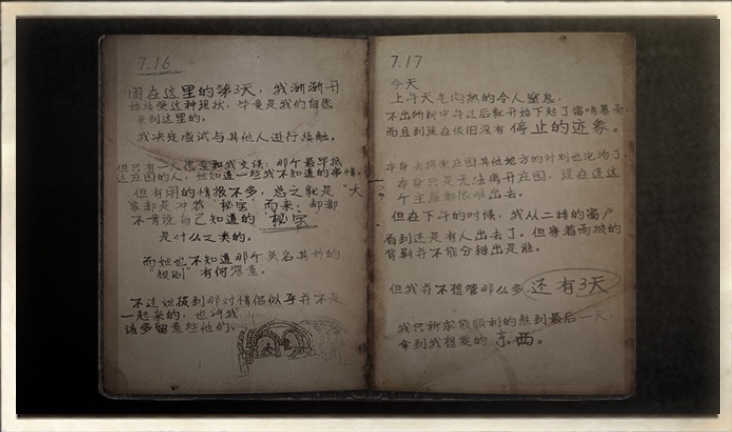 7.16
困在这里的第3天，我渐渐开
始接受这种现状，毕竟是我们自愿
来到这里的。
我决定尝试与其他人进行接触。
但只有一人愿意和我交谈：那个最早抵
达庄园的人，她知道一些我不知道的事情。
但有用的情报不多，总之就是"大
家都是冲着"秘密"而来，却都
不肯说自己知道的"秘密
是什么之类的。
而她也不知道那个莫名其妙的
"规则"有何深意。
不过她提到那对情侣似乎并不是
一起来的，也许我
该多留意些他们。
7.17
今天
上午天气闷热的令人窒息，
不出所料中午过后就开始下起了雷鸣暴雨，
而且到现在依旧没有停止的迹象。
本身去探索庄园其他地方的计划也泡汤了
本身只是无法离开庄园，现在连这
个主屋都很难出去。
但在下午的时候，我从二楼的窗户
看到还是有人出去了。但穿着雨披的
背影并不能分辨出是谁。
但我并不想管那么多，还有3天
我只祈求能顺利的熬到最后一天
拿到我想要的东西。